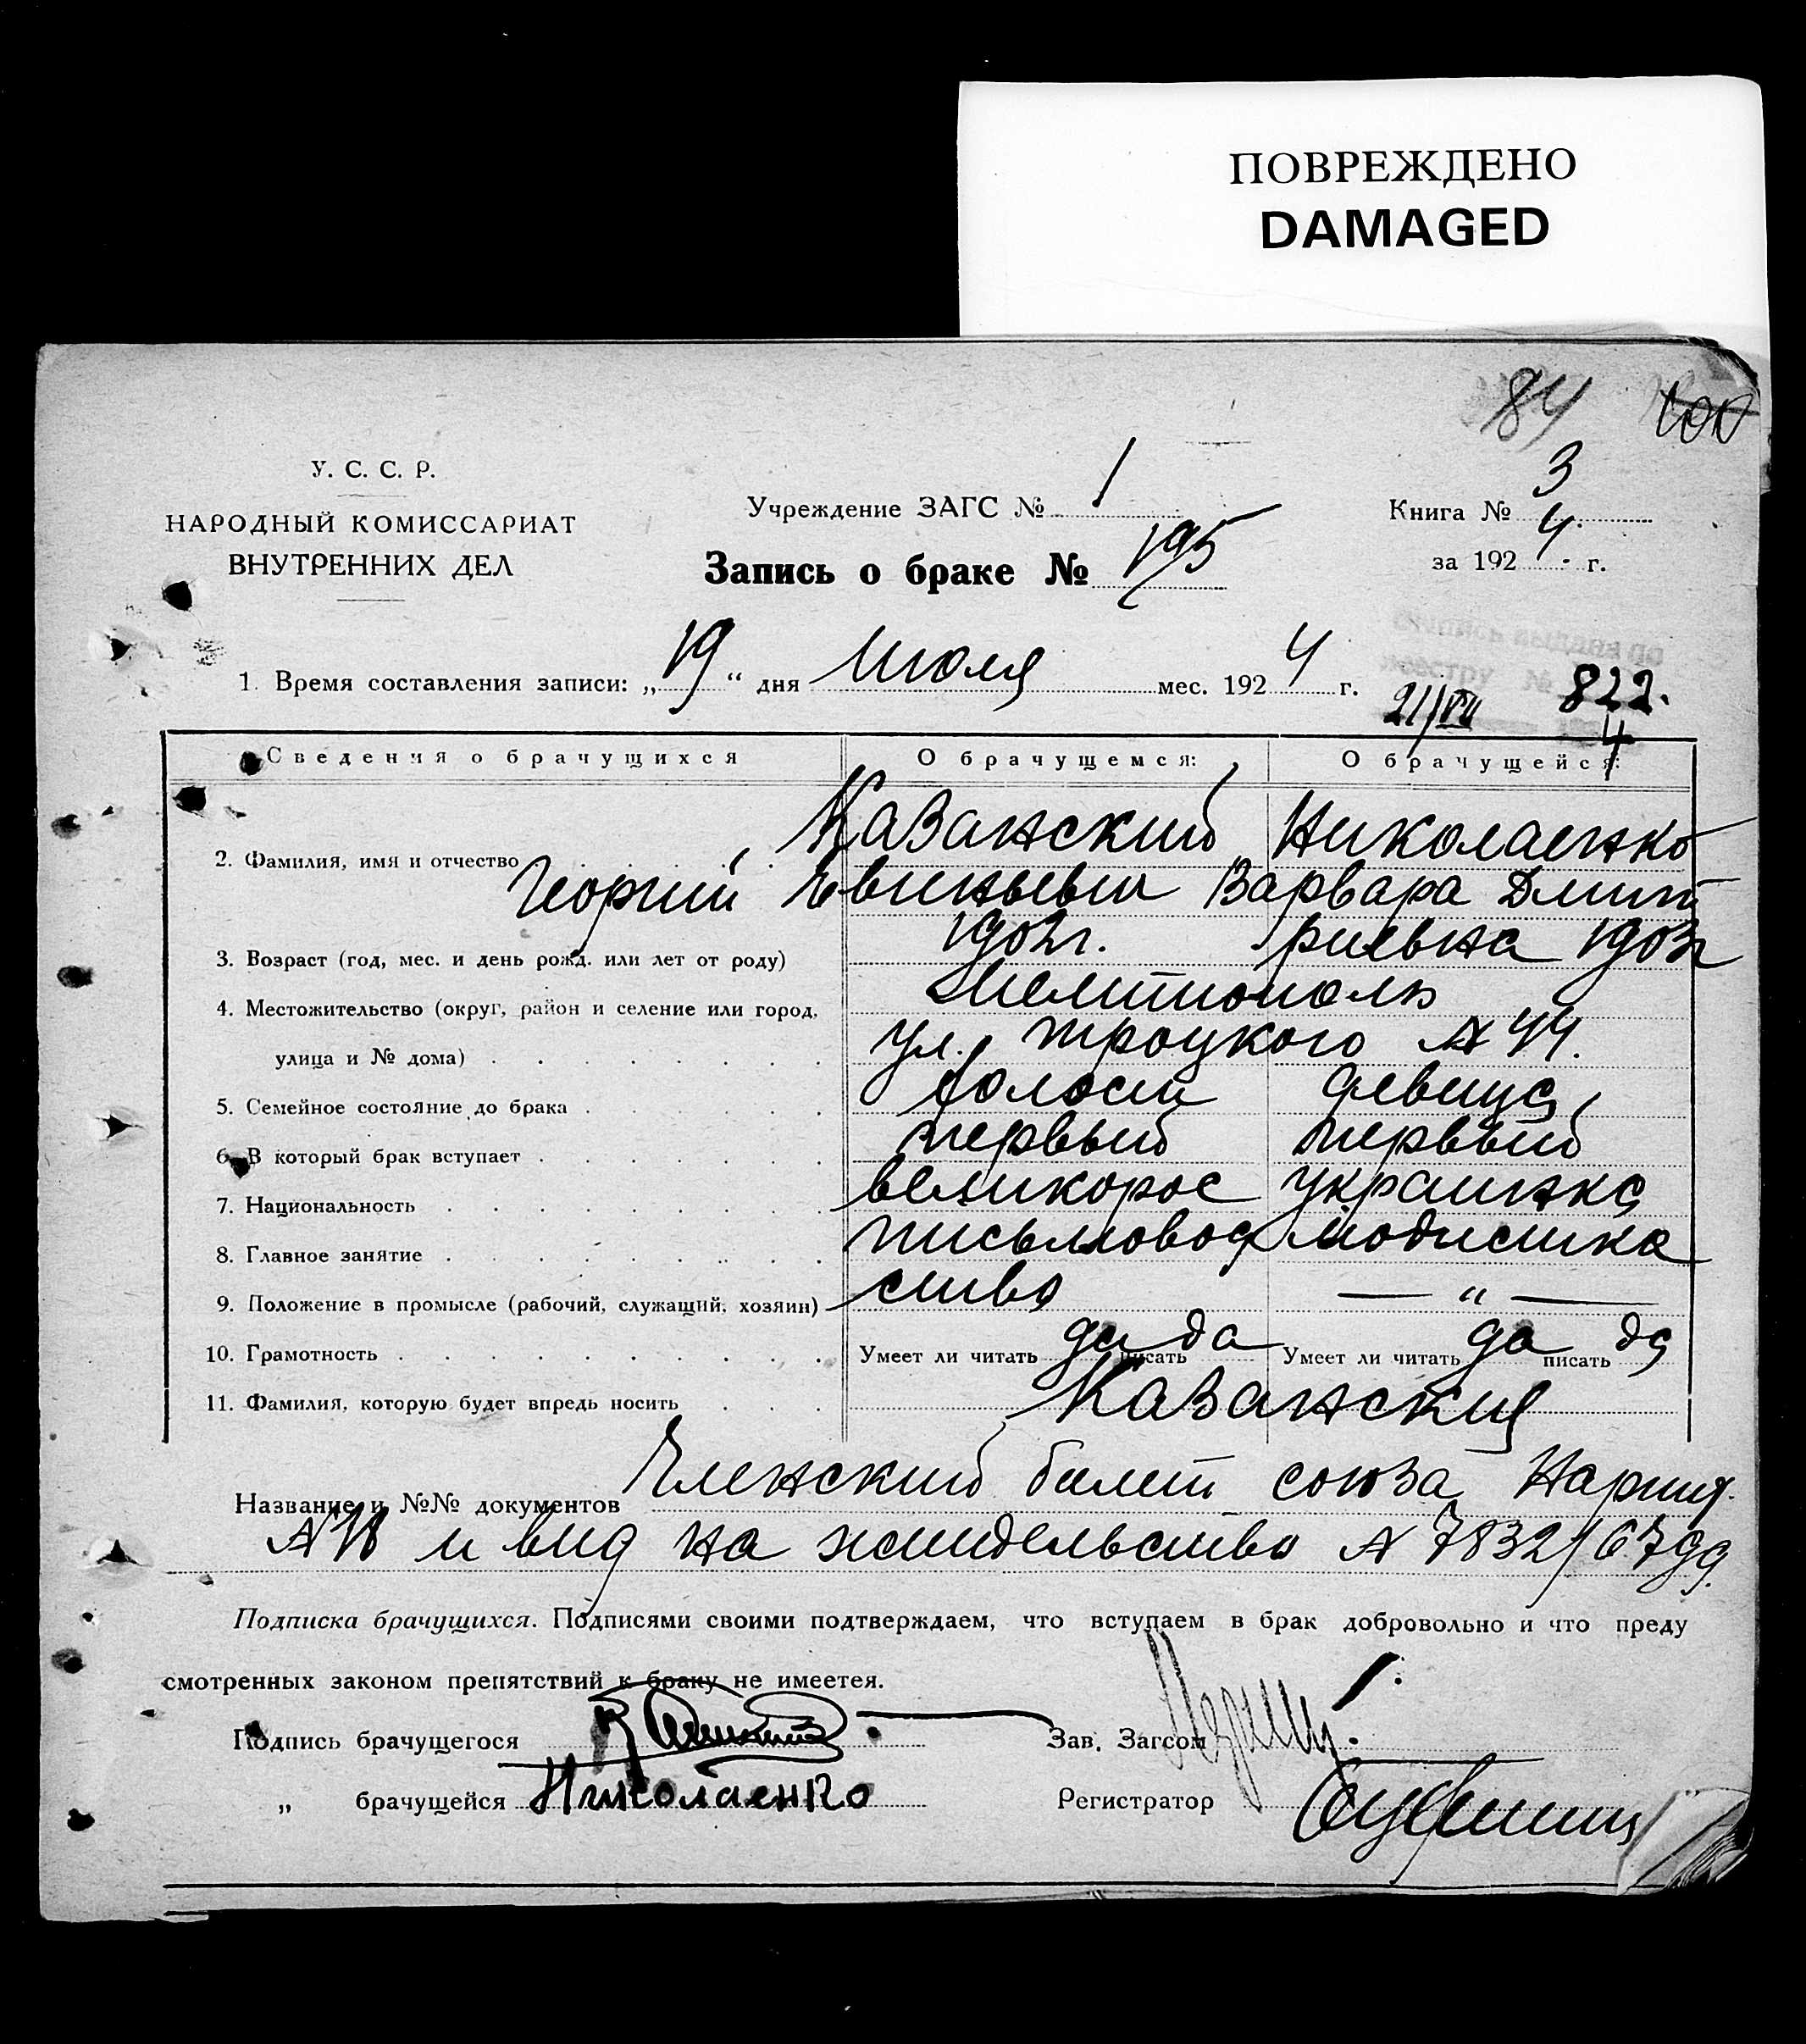 ПОВРЕЖДЕНО
DAMAGED
84 100
У. С. С. Р.
НАРОДНЫЙ КОМИССАРИАТ
ВНУТРЕННИХ ДЕЛ
Учреждение ЗАГС № 1
Запись о браке № 195
Книга № 3
за 1924 г.
1. Время составления записи: „19“ дня Июля мес. 1924 г.
выдана по
реестру № 822.
21/VII 4
Сведения о брачущихся О брачущемся: О брачущейся:
2. Фамилия, имя и отчество Казанский Николаенко
Георгий Евгеньевич Варвара Дмит
3. Возраст (год, мес. и день рожд. или лет от роду) 1902г. риевна 1903г
4. Местожительство (округ, район и селение или город, Мелитополь
улица и № дома) ул. Троцкого № 44.
5. Семейное состояние до брака холост девица
6. В который брак вступает первый первый
7. Национальность великорос украинка
8. Главное занятие письмовод модистка
9. Положение в промысле (рабочий, служащий, хозяин) ство — " —
10. Грамотность Умеет ли читать да писать да Умеет ли читать да писать да
11. Фамилия, которую будет впредь носить Казанский
Название и №№ документов Членский билет союза Нарпит.
и вид на жительство № 7832/6799.
Подписка брачущихся. Подписями своими подтверждаем, что вступаем в брак добровольно и что преду
смотренных законом препятствий к браку не имеется.
Подпись брачущегося
Зав. Загсом
„ брачущейся Николаенко
Регистратор